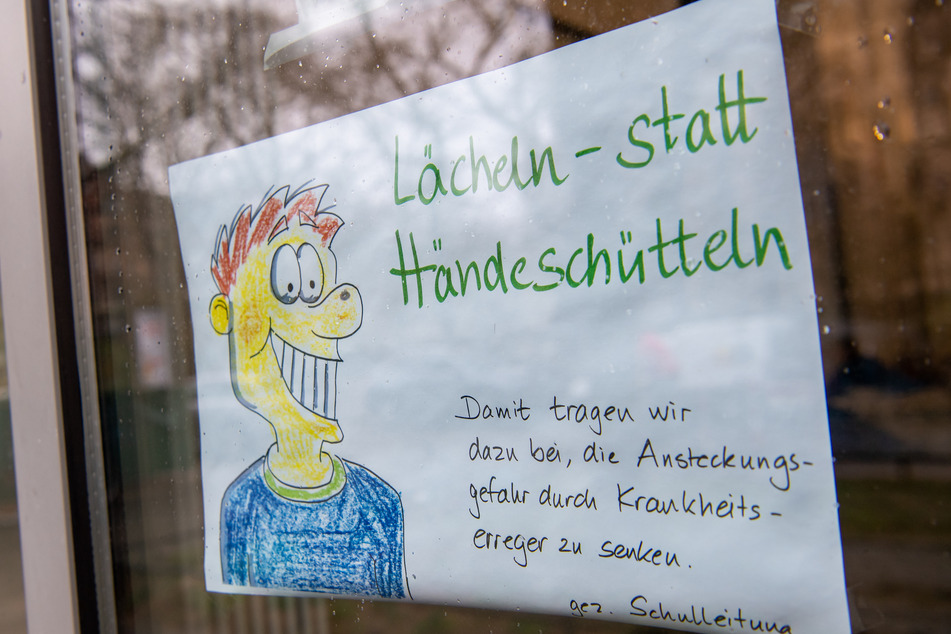 Lächeln - statt
Händeschütteln
Damit tragen wir
dazu bei, die Ansteckungs-
gefahr durch Krankheits-
erreger zu senken.
gez. Schulleitung